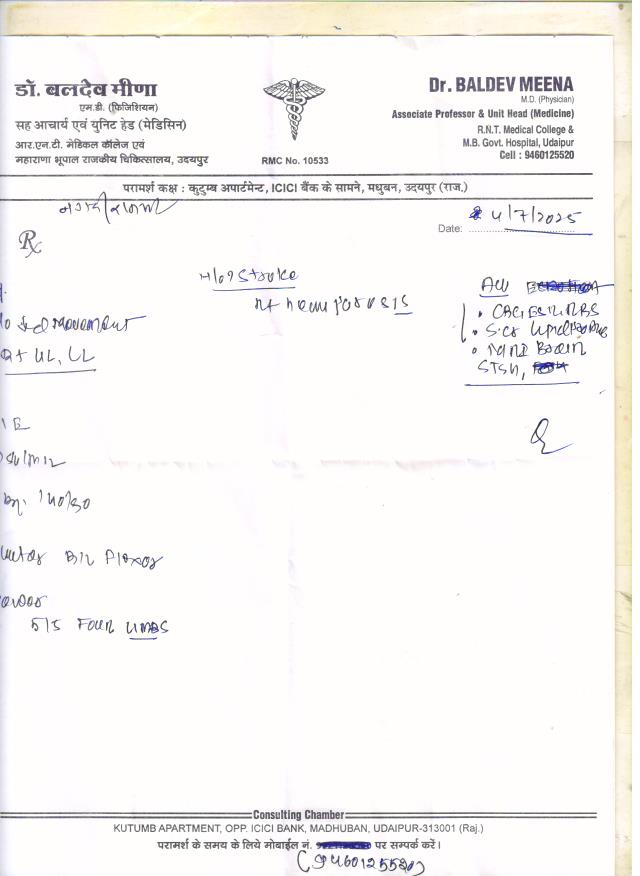 डॉ. बलदेव मीणा
एम.डी. (फ़िजिशियन)
सह आचार्य एवं युनिट हेड (मेडिसिन)
आर.एन.टी. मेडिकल कॉलेज एवं
महाराणा भूपाल राजकीय चिकित्सालय, उदयपुर
RMC No. 10533
Dr. BALDEV MEENA
M.D. (Physician)
Associate Professor & Unit Head (Medicine)
R.N.T. Medical College &
M.B. Govt. Hospital, Udaipur
Cell : 9460125520
परामर्श कक्ष : कुटुम्ब अपार्टमेन्ट, ICICI बैंक के सामने, मधुबन, उदयपुर (राज.)
Date: 4/7/2025
Rx
H/o Stroke
Rt hemiparesis
Adv
• CBC, ESR, RBS
• MRI Brain
STSH,
movement
UL, LL
140/80
B/L Plexor
5/5 Four LIMBS
Consulting Chamber
KUTUMB APARTMENT, OPP. ICICI BANK, MADHUBAN, UDAIPUR-313001 (Raj.)
परामर्श के समय के लिये मोबाईल नं. पर सम्पर्क करें।